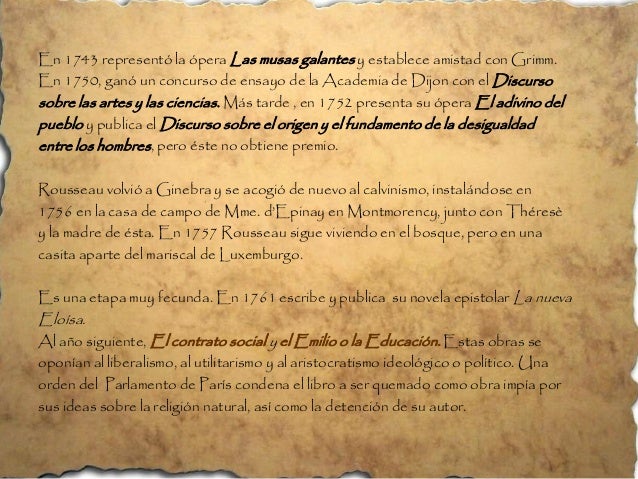 En 1743 representó la ópera Las musas galantes y establece amistad con Grimm.
En 1750, ganó un concurso de ensayo de la Academia de Dijon con el Discurso
sobre las artes y las ciencias. Más tarde , en 1752 presenta su ópera El adivino del
pueblo y publica el Discurso sobre el origen y el fundamento de la desigualdad
entre los hombres, pero éste no obtiene premio.
Rousseau volvió a Ginebra y se acogió de nuevo al calvinismo, instalándose en
1756 en la casa de campo de Mme. d'Epinay en Montmorency, junto con Théresè
y la madre de ésta. En 1757 Rousseau sigue viviendo en el bosque, pero en una
casita aparte del mariscal de Luxemburgo.
Es una etapa muy fecunda. En 1761 escribe y publica su novela epistolar La nueva
Eloísa.
Al año siguiente, El contrato social y el Emilio o la Educación. Estas obras se
oponían al liberalismo, al utilitarismo y al aristocratismo ideológico o político. Una
orden del Parlamento de París condena el libro a ser quemado como obra impía por
sus ideas sobre la religión natural, así como la detención de su autor.